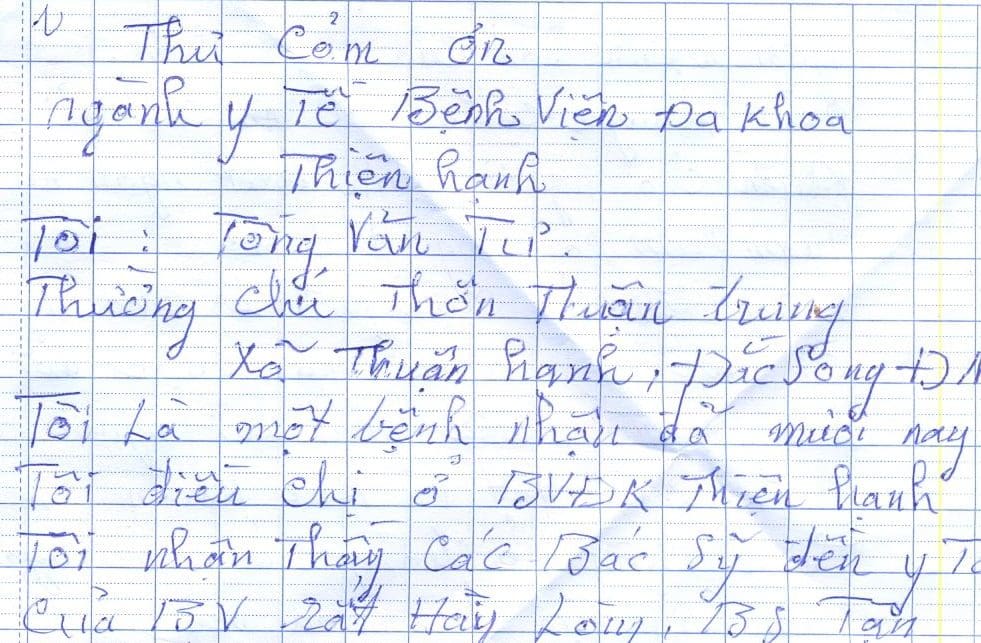 Thư Cảm ơn
ngành y Tế Bệnh Viện Đa Khoa
Thiện hạnh
Tôi : Tống Văn Tư.
Thường chú Thôn Thuận trung
Xã Thuận hạnh, Đắc Song ĐN
Tôi Là một bệnh nhân đã mười nay
Tôi điều chị ở BVĐK Thiện hạnh
Tôi nhận Thấy Các Bác Sỹ đến y Tá
Của BV rất Hày Lòng. BS Tấn